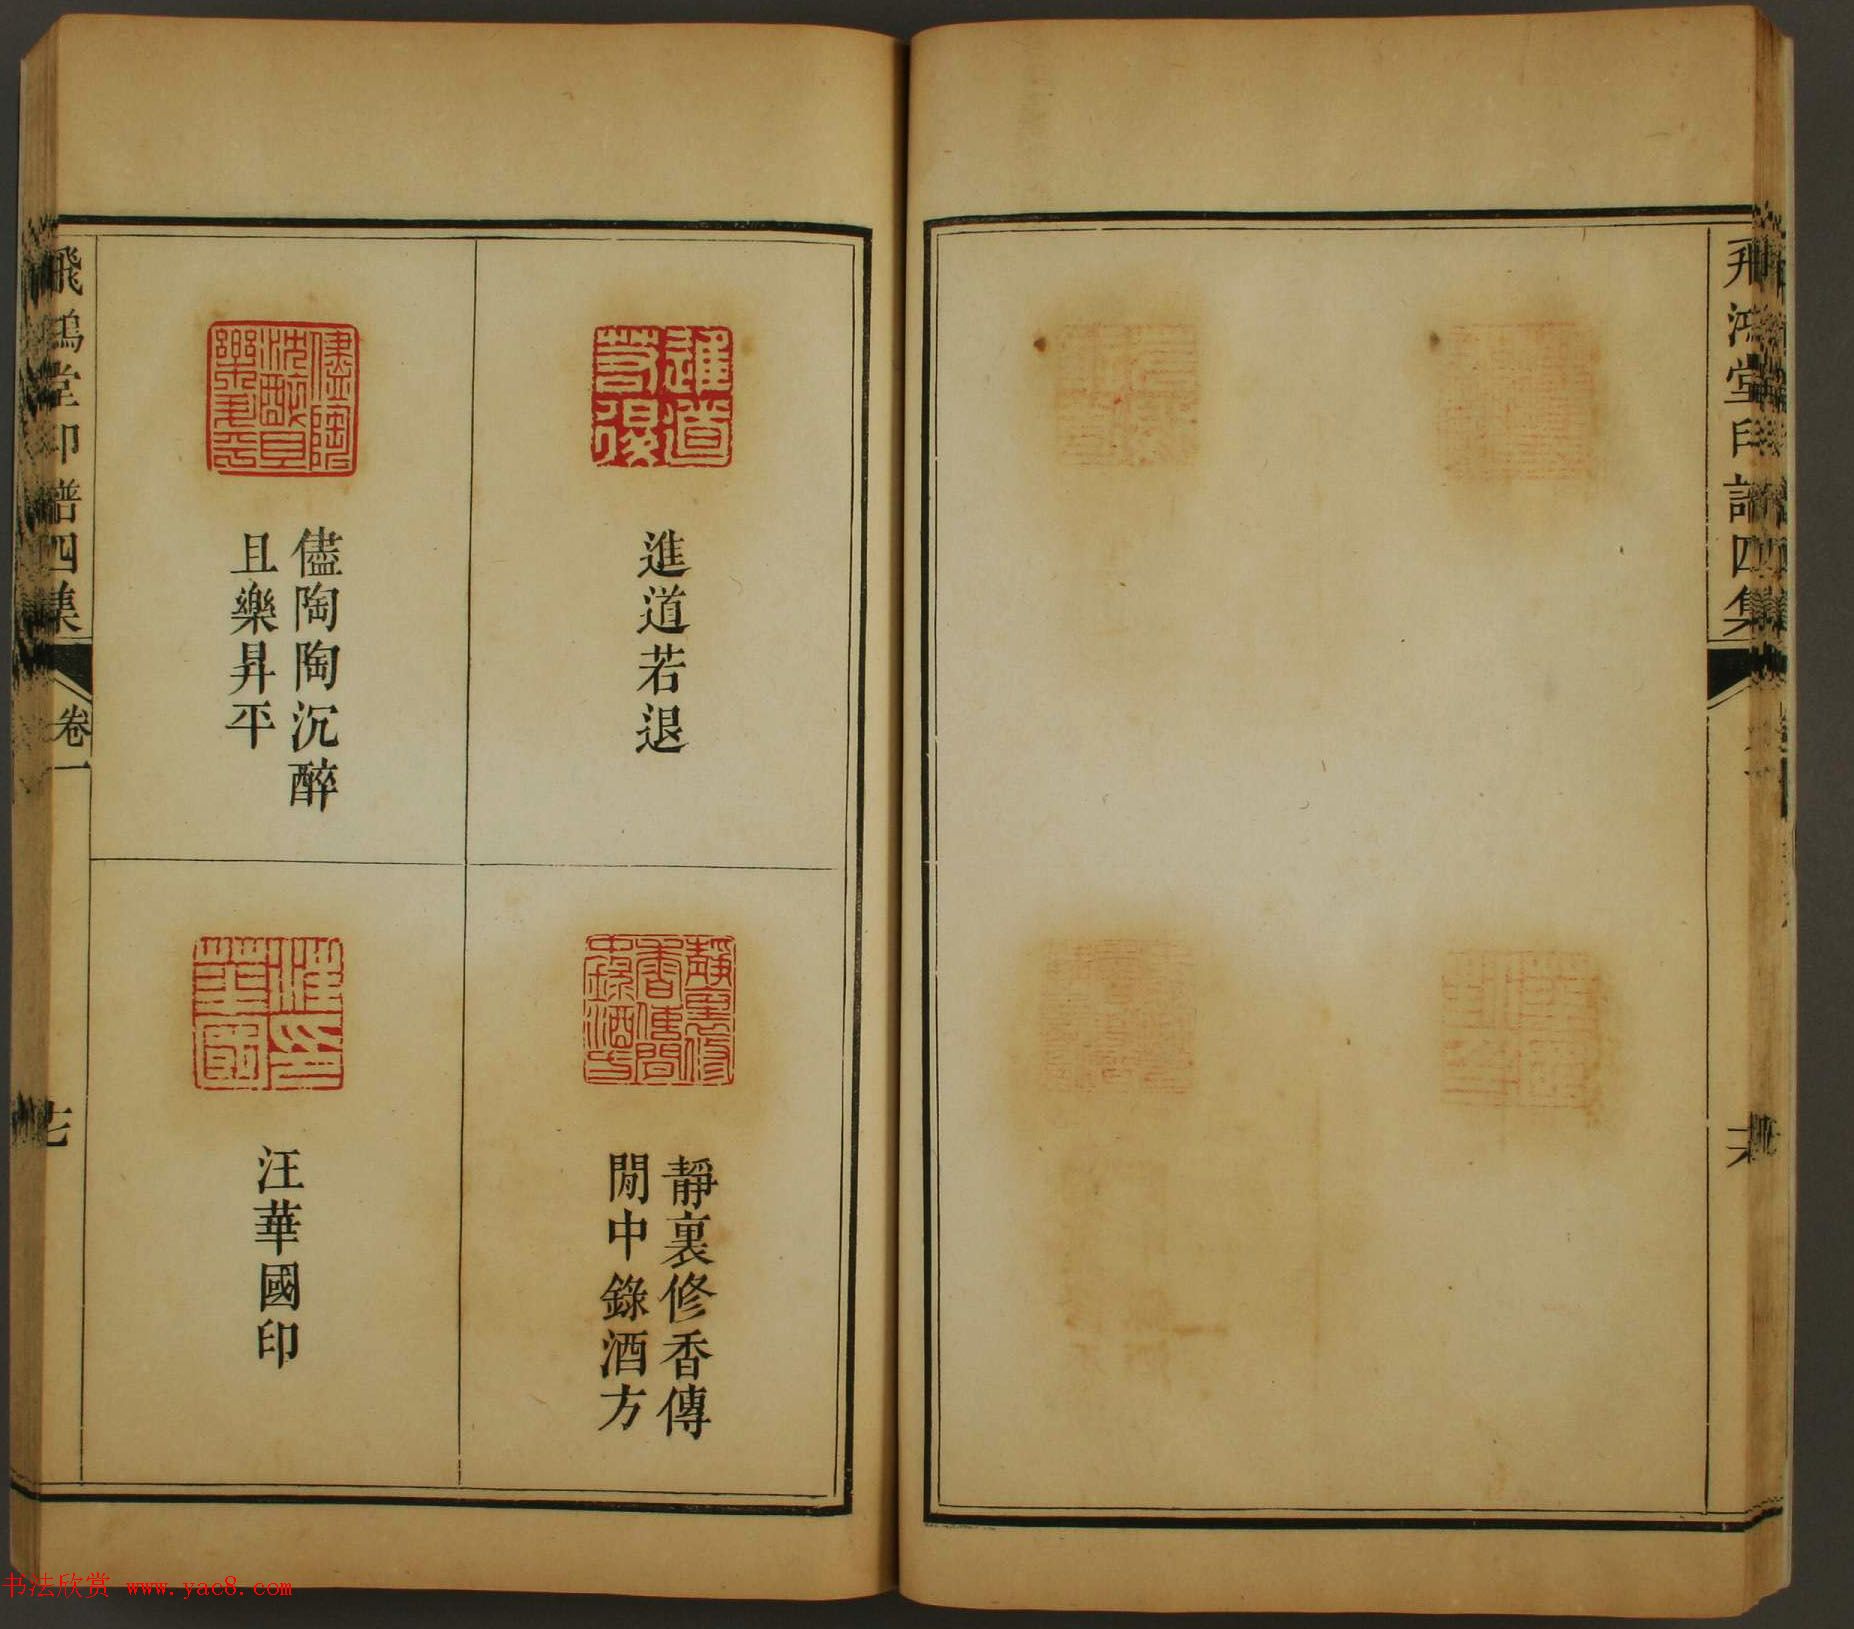 飛鴻堂印譜四集
進道若退
儘陶陶沉醉
且樂昇平
靜裏修香傳
閒中錄酒方
汪華國印
飛鴻堂印譜四集
卷一
书法欣赏 www.yac8.com